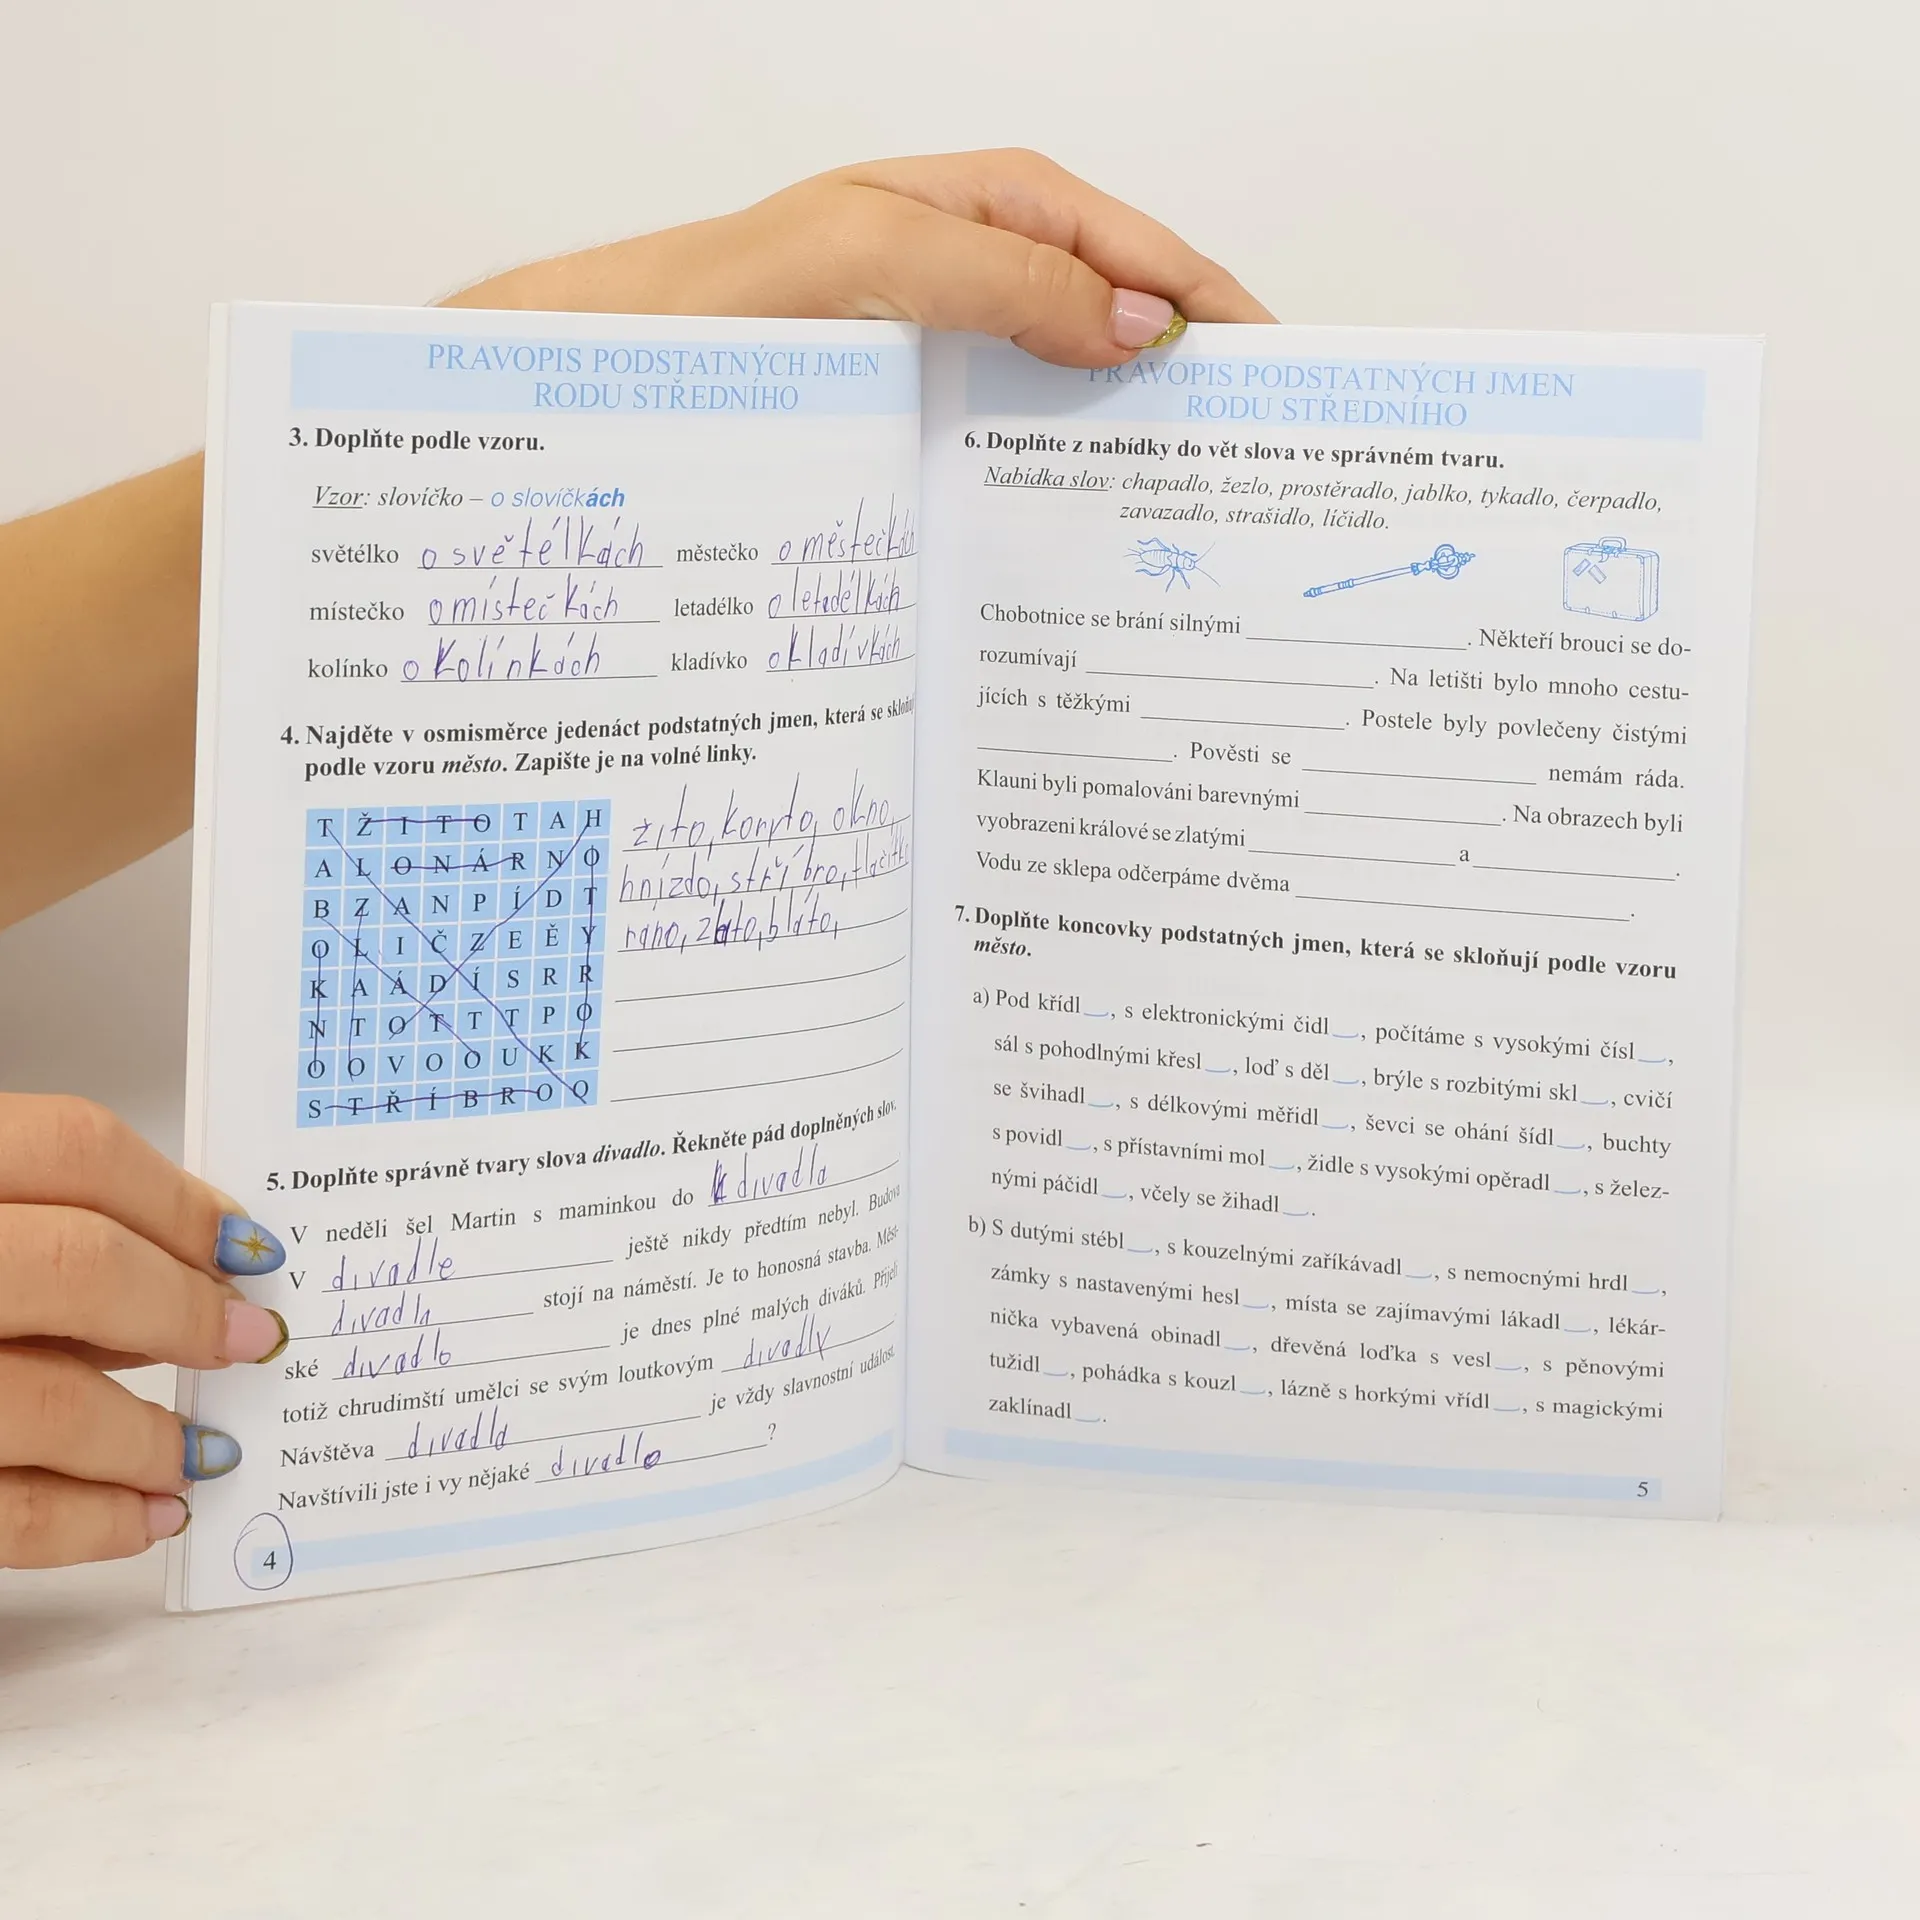 PRAVOPIS PODSTATNÝCH JMEN
RODU STŘEDNÍHO
3. Doplňte podle vzoru.
Vzor: slovíčko – o slovíčkách
světélko o světélkách městečko o městečkách
místečko o místečkách letadélko o letadélkách
kolínko o kolínkách kladívko o kladívkách
4. Najděte v osmisměrce jedenáct podstatných jmen, která se skloňují
podle vzoru město. Zapište je na volné linky.
T Ž I T O T A H
A L O N Á R N O
B Z A N P Í D T
O L I Č Z E Ě Y
K A Á D Í S R R
N T O T T T P O
O O V O O U K K
S T Ř Í B R O Q
žito, koryto, okno,
hnízdo, stříbro, tlačítko
ráno, zlato, bláto,
5. Doplňte správně tvary slova divadlo. Řekněte pád doplněných slov.
V neděli šel Martin s maminkou do divadla
V divadle ještě nikdy předtím nebyl. Budova
divadla stojí na náměstí. Je to honosná stavba. Měst-
ské divadlo je dnes plné malých diváků. Přijeli
totiž chrudimští umělci se svým loutkovým divadly
Návštěva divadla je vždy slavnostní událost.
Navštívili jste i vy nějaké divadlo ?
4
PRAVOPIS PODSTATNÝCH JMEN
RODU STŘEDNÍHO
6. Doplňte z nabídky do vět slova ve správném tvaru.
Nabídka slov: chapadlo, žezlo, prostěradlo, jablko, tykadlo, čerpadlo,
zavazadlo, strašidlo, líčidlo.
Chobotnice se brání silnými ____. Někteří brouci se do-
rozumívají ____. Na letišti bylo mnoho cestu-
jících s těžkými ____. Postele byly povlečeny čistými
____. Pověsti se ____ nemám ráda.
Klauni byli pomalováni barevnými ____. Na obrazech byli
vyobrazeni králové se zlatými ____ a ____.
Vodu ze sklepa odčerpáme dvěma ____.
7. Doplňte koncovky podstatných jmen, která se skloňují podle vzoru
město.
a) Pod křídl__, s elektronickými čidl__, počítáme s vysokými čísl__,
sál s pohodlnými křesl__, loď s děl__, brýle s rozbitými skl__, cvičí
se švihadl__, s délkovými měřidl__, ševci se ohání šídl__, buchty
s povidl__, s přístavními mol__, židle s vysokými opěradl__, s želez-
nými páčidl__, včely se žihadl__.
b) S dutými stébl__, s kouzelnými zaříkávadl__, s nemocnými hrdl__,
zámky s nastavenými hesl__, místa se zajímavými lákadl__, lékár-
nička vybavená obinadl__, dřevěná loďka s vesl__, s pěnovými
tužidl__, pohádka s kouzl__, lázně s horkými vřídl__, s magickými
zaklínadl__.
5